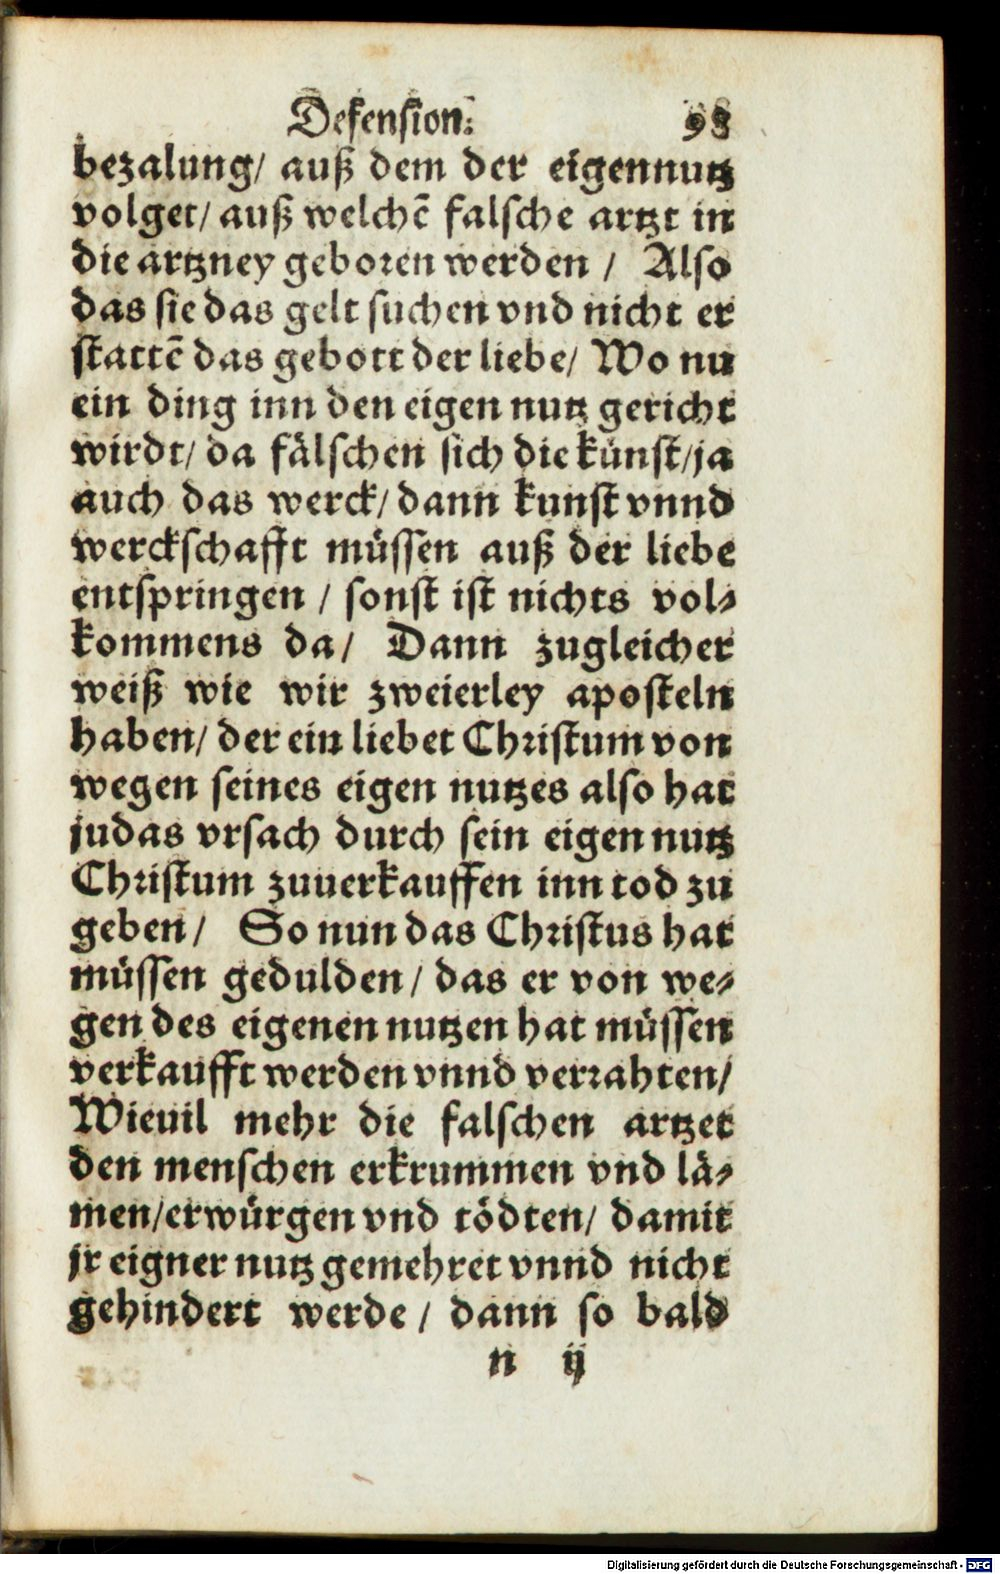 Defension. 98
bezalung/ auß dem der eigennutz
volget/ auß welchē falsche artzt in
die artzney geboren werden / Also
das sie das gelt suchen vnd nicht er
stattē das gebott der liebe/ Wo nu
ein ding inn den eigen nutz gericht
wirdt/ da fälschen sich die künst/ja
auch das werck/ dann kunst vnnd
werckschafft müssen auß der liebe
entspringen / sonst ist nichts vol⸗
kommens da/ Dann zugleicher
weiß wie wir zweierley aposteln
haben/ der ein liebet Christum von
wegen seines eigen nutzes also hat
judas vrsach durch sein eigen nutz
Christum zuuerkauffen inn tod zu
geben/ So nun das Christus hat
müssen gedulden / das er von we⸗
gen des eigenen nutzen hat müssen
verkaufft werden vnnd verrahten/
Wieuil mehr die falschen artzet
den menschen erkrummen vnd lä⸗
men/erwürgen vnd tödten/ damit
jr eigner nutz gemehret vnnd nicht
gehindert werde / dann so bald
n ij
Digitalisierung gefördert durch die Deutsche Forschungsgemeinschaft - DFG